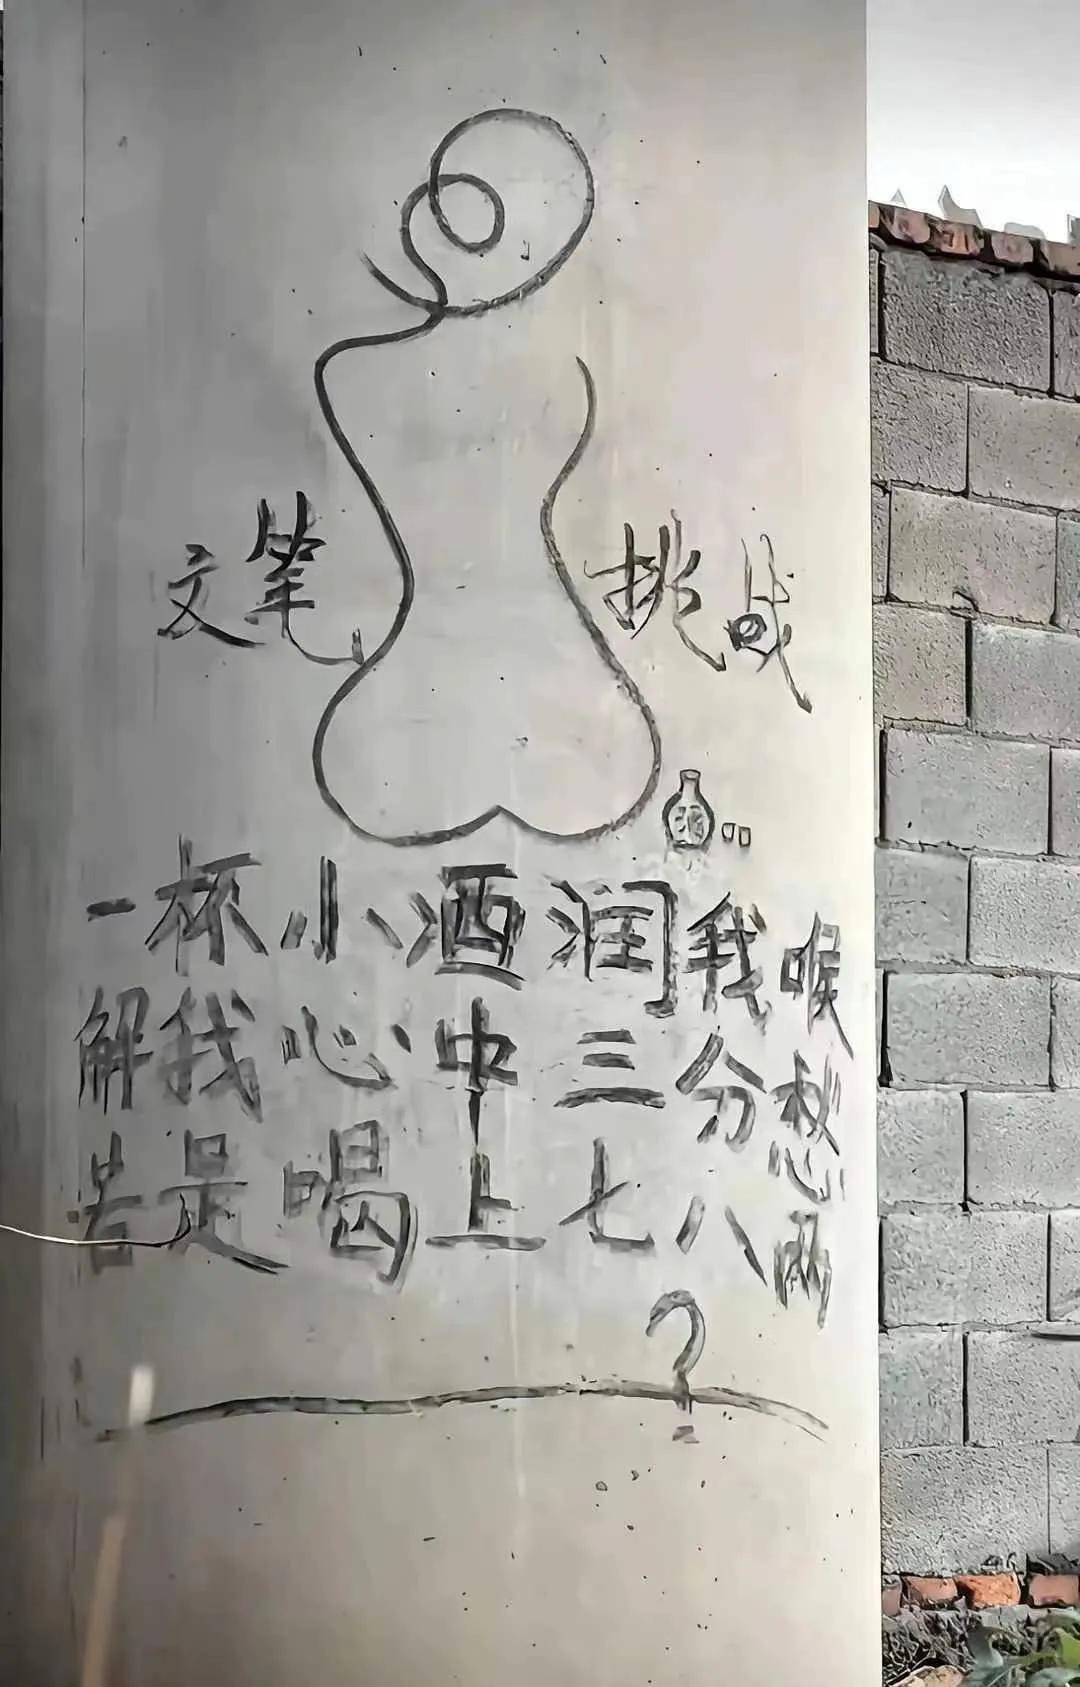 文笔 挑战
酒
一杯小酒润我喉
解我心中三分愁
若是喝上七八两
?